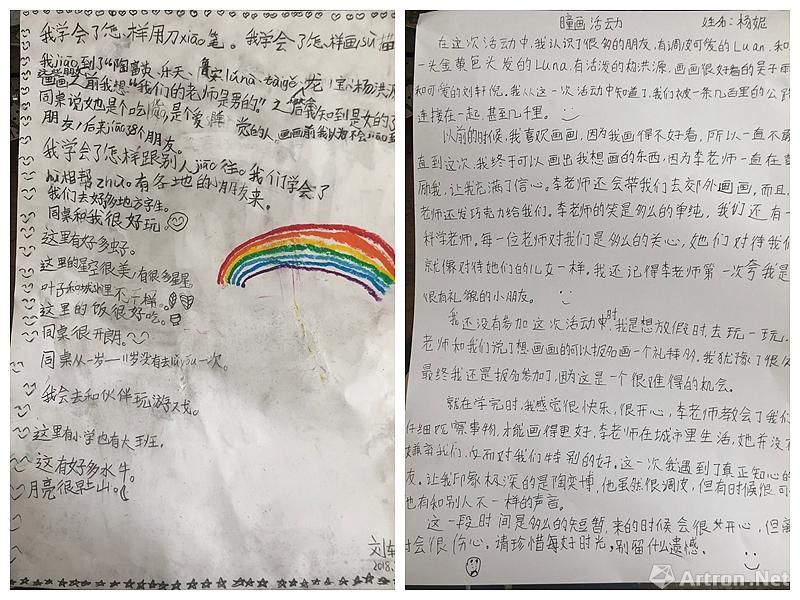 我学会了怎样用刀xiāo笔。我学会了怎样画sù描
我jiāo到了“陶奕
画画之前我想“我们的老师是男的”
同桌说她是个吃 是个爱睡觉的人。画画前我以为不会jiāo
朋友，后来jiāo 8个朋友。
我学会了怎样跟别人jiāo往。我们学会了
相帮zhù。有各地的小朋友来。
我们去好多地方写生。
同桌和我很好玩。
这里有好多虫子。
这里的星空很美，有很多星星
叶子和城里不一样。
这里的饭很好吃。
同桌很开朗。
同桌从一岁—11岁没有去lǚyóu一次。
我会去和伙伴玩游戏。
这里有小学也有大班。
这有好多水牛。
月亮很早上山。
刘
2018.
瞳画活动 姓名：杨妮
在这次活动中，我认识了很多的朋友，有调皮可爱的Luan，和
一头金黄色头发的Luna，有活泼的杨洪源，画画很好看的吴子雨
和可爱的刘轩倪。我从这一次活动中知道了，我们被一条几百里的公路
连接在一起，甚至几千里。
以前的时候，我喜欢画画，因为我画得不好看，所以一直不敢
直到这次，我终于可以画出我想画的东西，因为李老师一直在鼓
励我，让我充满了信心。李老师还会带我们去郊外画画，而且
老师还发巧克力给我们。李老师的笑是多么的单纯，我们还有一
科学老师，每一位老师对我们是多么的关心，她们对待我们
就像对待她们的儿女一样，我还记得李老师第一次夸我是
很有礼貌的小朋友。
我还没有参加这次活动时，我是想放假时去玩一玩，
老师和我们说了想画画的可以报名画一个礼拜多，我犹豫了很久
最终我还是报名参加了，因为这是一个很难得的机会。
就在学完时，我感觉很快乐，很开心，李老师教会了我们
仔细观察事物，才能画得更好，李老师在城市里生活，她并没有
嫌弃我们，反而对我们特别的好。这一次我遇到了真正知心的
友。让我印象极深的是陶奕博，他虽然很调皮，但有时候很可
也有和别人不一样的声音。
这一段时间是多么的短暂，来的时候会很开心，但离
时会很伤心。请珍惜每好时光，别留什么遗憾。
Artron.Net